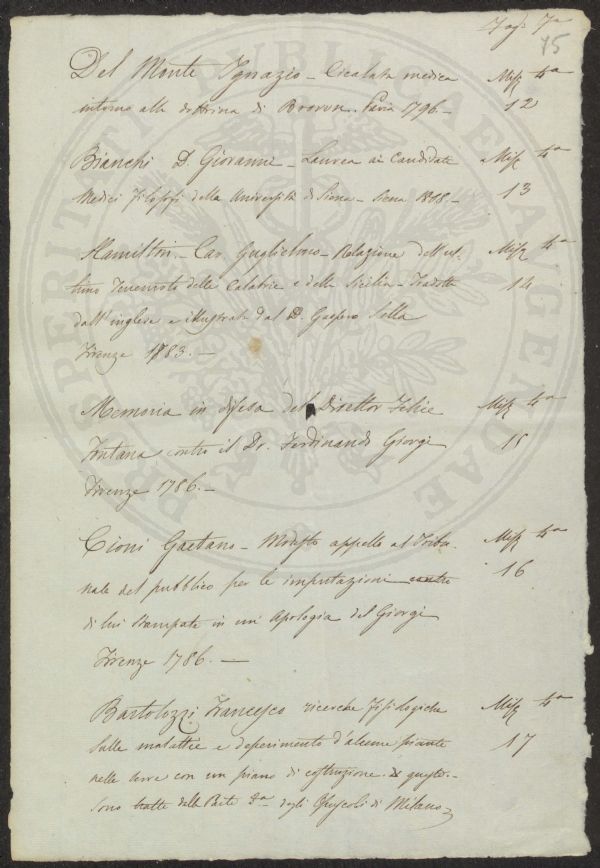 Pag. 7a 75
Del Monte Ignazio - Cicalata medica Misc 4a
intorno alla dottrina di Brown. Pavia 1796 - 12
Bianchi D. Giovanni - Laurea ai Candidati Misc 4a
Medici Filosofi della Università di Siena - Siena 1818 - 13
Hamilton - Cav. Guglielmo - Relazione dell'ul- Misc 4a
timo Tremuoto delle Calabrie e della Sicilia - Tradotta 14
dall'inglese e illustrata dal D. Gaspero Sella
Firenze 1783. -
Memoria in difesa del Direttor Felice Misc 4a
Fontana contro il Dr. Ferdinando Giorgi 15
Firenze 1786. -
Cioni Gaetano - Modesto appello al Tribu- Misc 4a
nale del pubblico per le imputazioni contro 16
di lui stampate in un' Apologia del Giorgi
Firenze 1786. -
Bartolozzi Francesco ricerche Fisiologiche Misc 4a
sulle malattie e deperimento d'alcune piante 17
nelle serre con un piano di costruzione di queste. -
Sono tratte dalla Parte 2a degli Opuscoli di Milano
PROSPERITATI PUBLICAE AUGENDAE